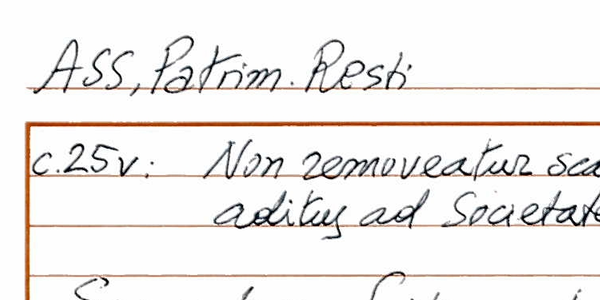 ASS, Patrim. Resti
c.25v: Non removeatur sca
aditus ad Societat